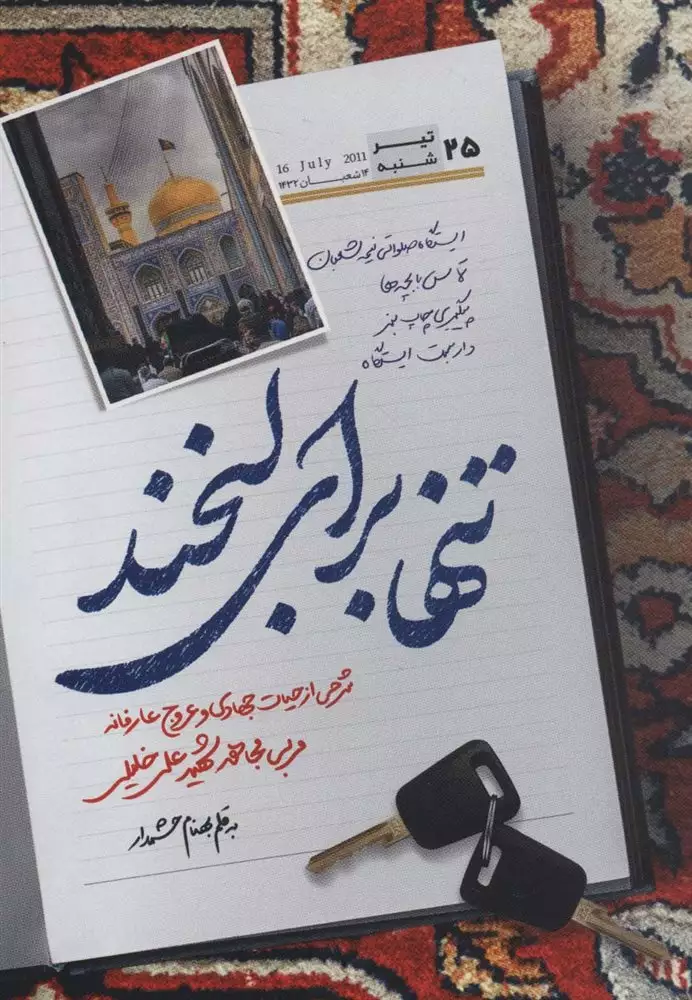 ۲۵ تیر شنبه
16 July 2011
۱۴ شعبان ۱۴۳۲
ایستگاه صلواتی نیمه شعبان
تماس با بچه‌ها
پیگیری چاپ بنر
داربست ایستگاه
تنها برای لبخند
شرحی از حیات جهادی و عروج عارفانه
مربی مجاهد شهید علی خلیلی
به قلم بهنام چشمدار